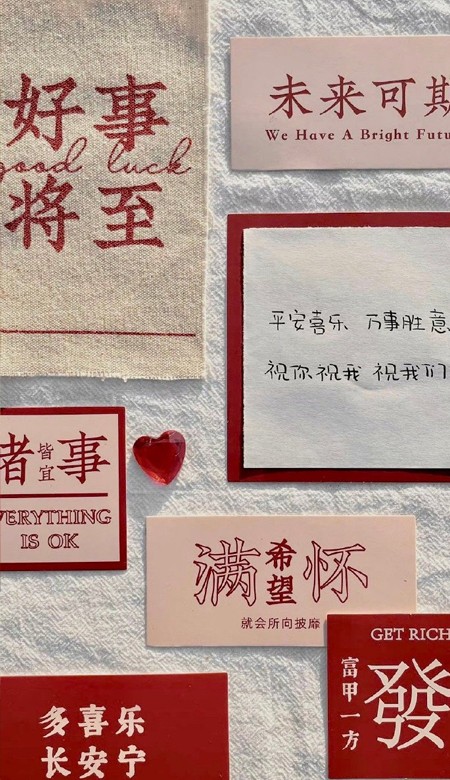 好事
good luck
将至
未来可期
We Have A Bright Futu
平安喜乐 万事胜意
祝你祝我 祝我们
诸事
皆宜
EVERYTHING
IS OK
满怀
希望
就会所向披靡
GET RICH
富甲一方
發
多喜乐
长安宁